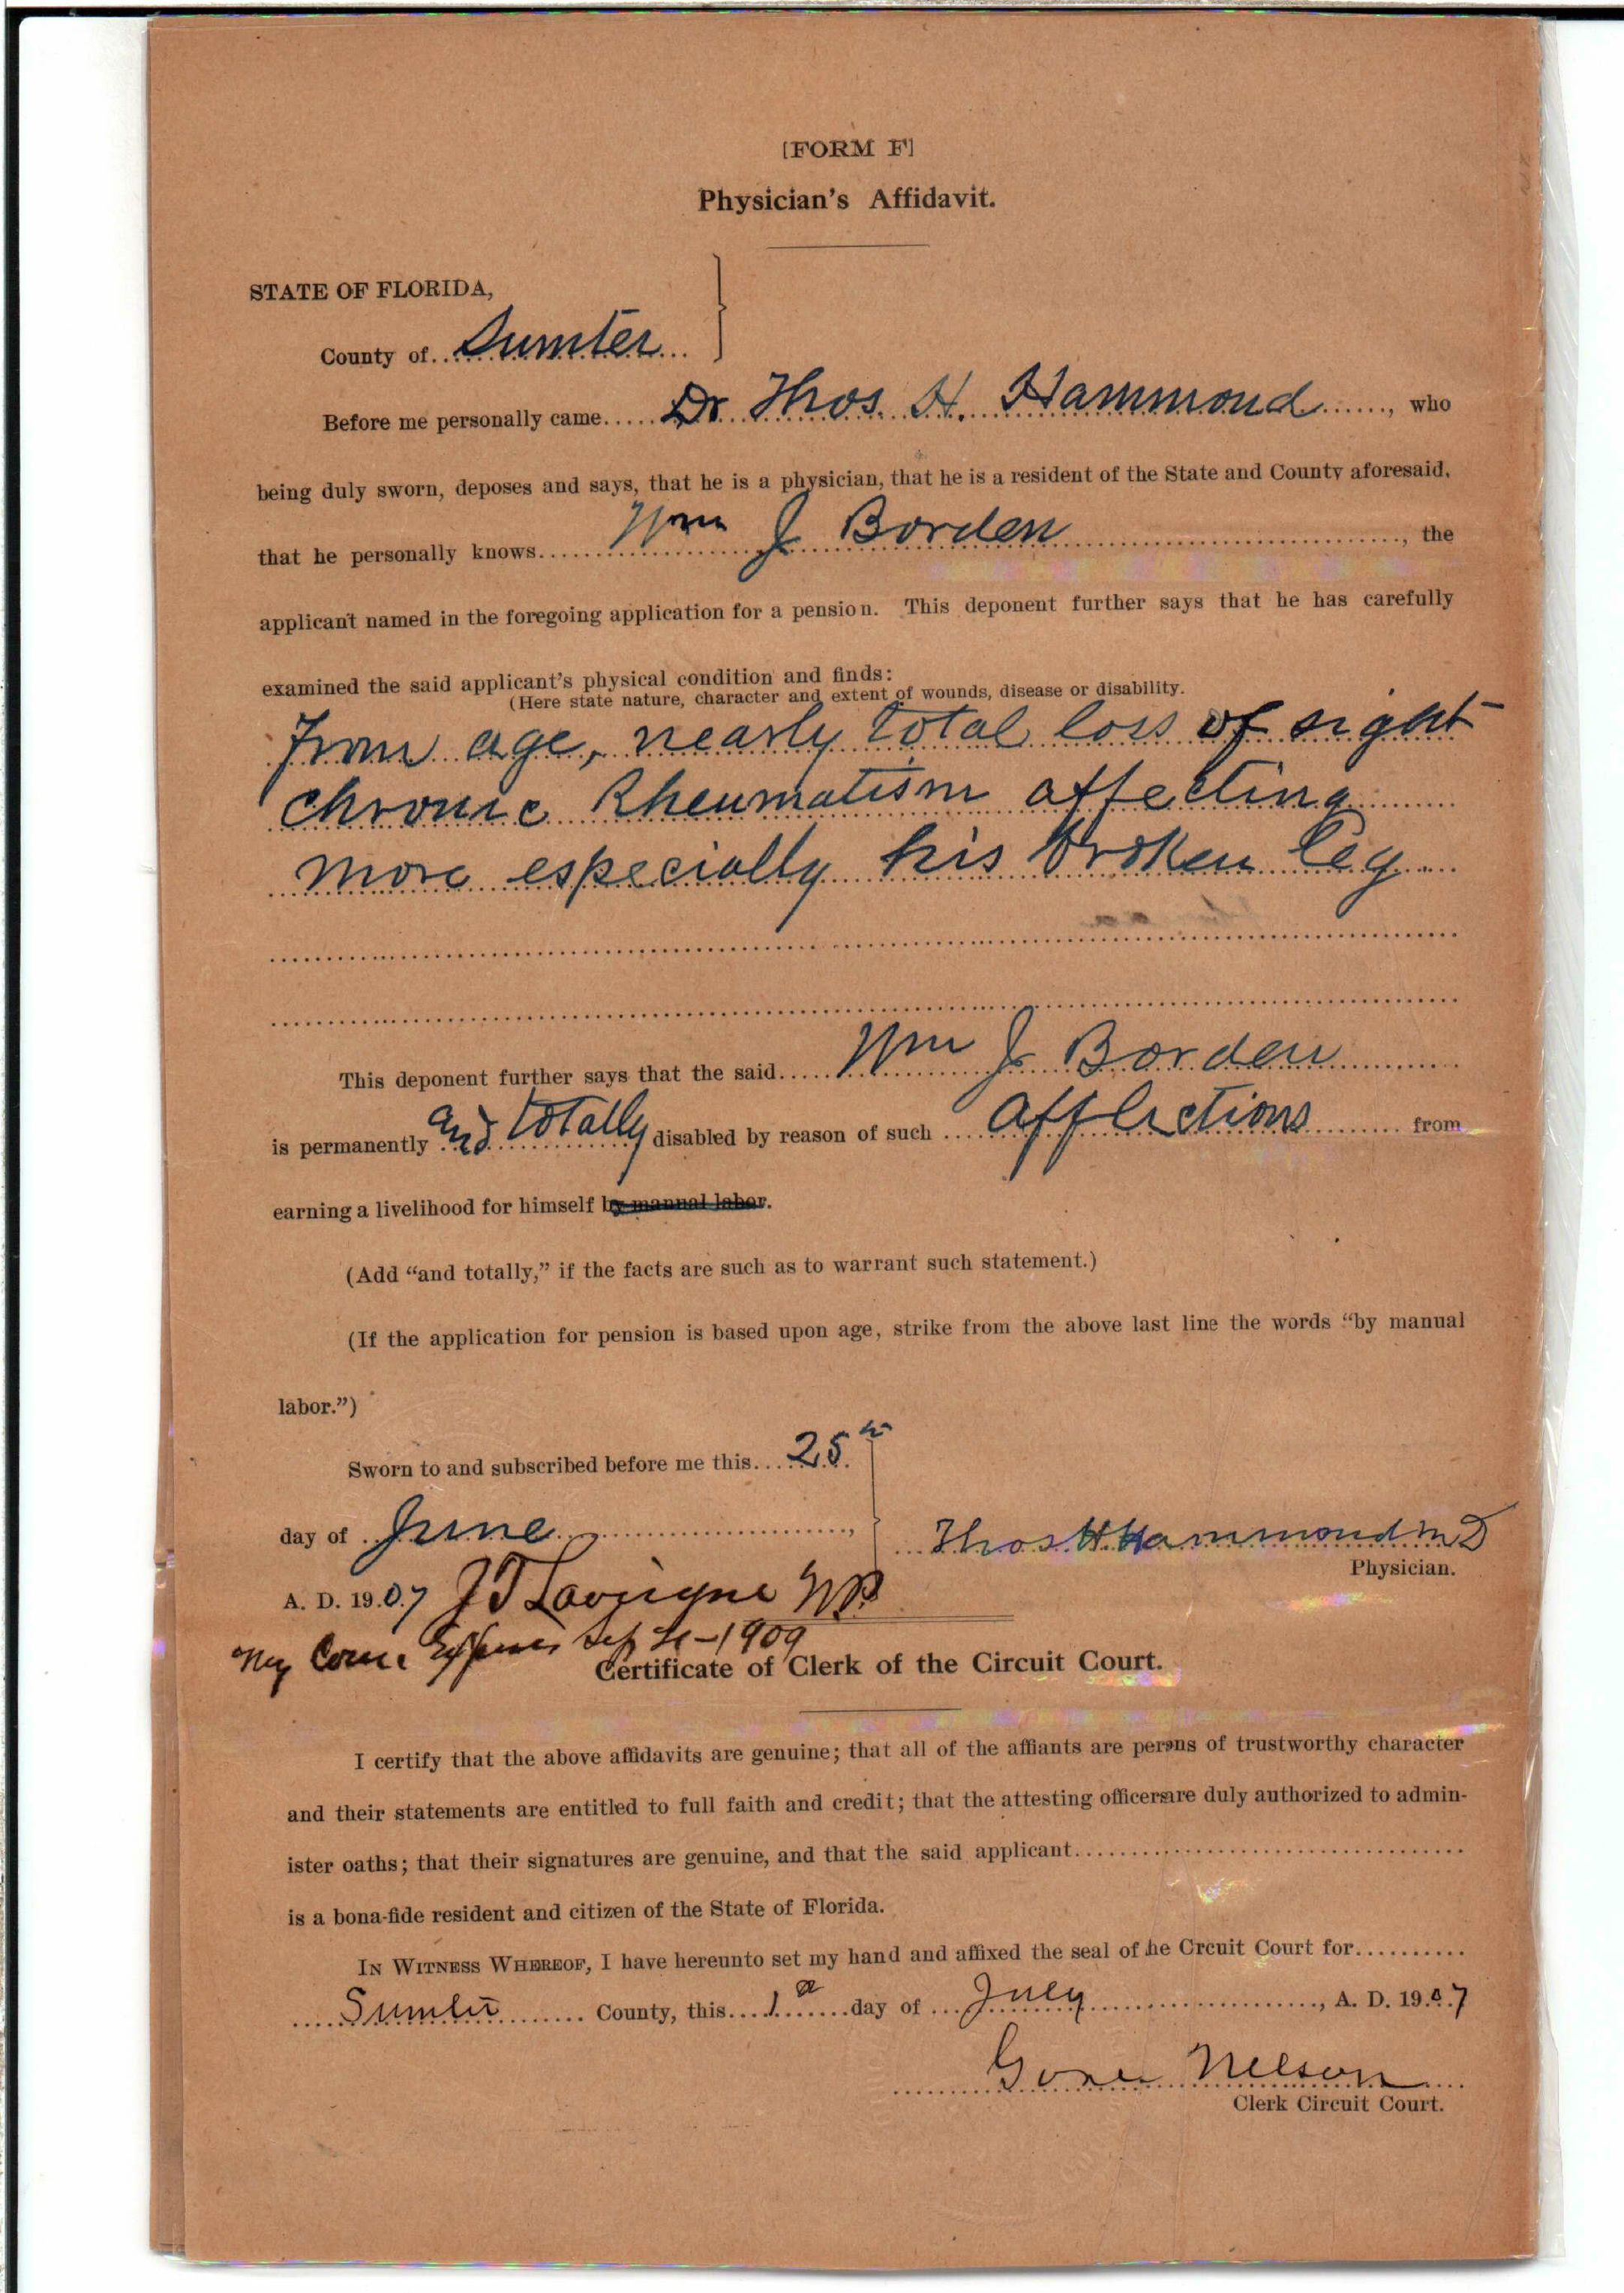 [FORM F]
Physician's Affidavit.
STATE OF FLORIDA,
County of Sumter
Before me personally came Dr Thos. H. Hammond, who
being duly sworn, deposes and says, that he is a physician, that he is a resident of the State and County aforesaid,
that he personally knows Wm J Borden, the
applicant named in the foregoing application for a pension. This deponent further says that he has carefully
examined the said applicant's physical condition and finds:
(Here state nature, character and extent of wounds, disease or disability.
From age, nearly total loss of sight
chronic Rheumatism affecting
more especially his broken leg
This deponent further says that the said Wm J Borden
is permanently and totally disabled by reason of such afflictions from
earning a livelihood for himself by manual labor.
(Add "and totally," if the facts are such as to warrant such statement.)
(If the application for pension is based upon age, strike from the above last line the words "by manual
labor.")
Sworn to and subscribed before me this 25th
day of June,
Thos H Hammond M D
Physician.
A. D. 1907 J T Lavigne NP
My Com Expires Sep 1909
Certificate of Clerk of the Circuit Court.
I certify that the above affidavits are genuine; that all of the affiants are persns of trustworthy character
and their statements are entitled to full faith and credit; that the attesting officersare duly authorized to admin-
ister oaths; that their signatures are genuine, and that the said applicant
is a bona-fide resident and citizen of the State of Florida.
IN WITNESS WHEREOF, I have hereunto set my hand and affixed the seal of he Crcuit Court for
Sumter County, this 1 day of July, A. D. 1907
Nelson
Clerk Circuit Court.